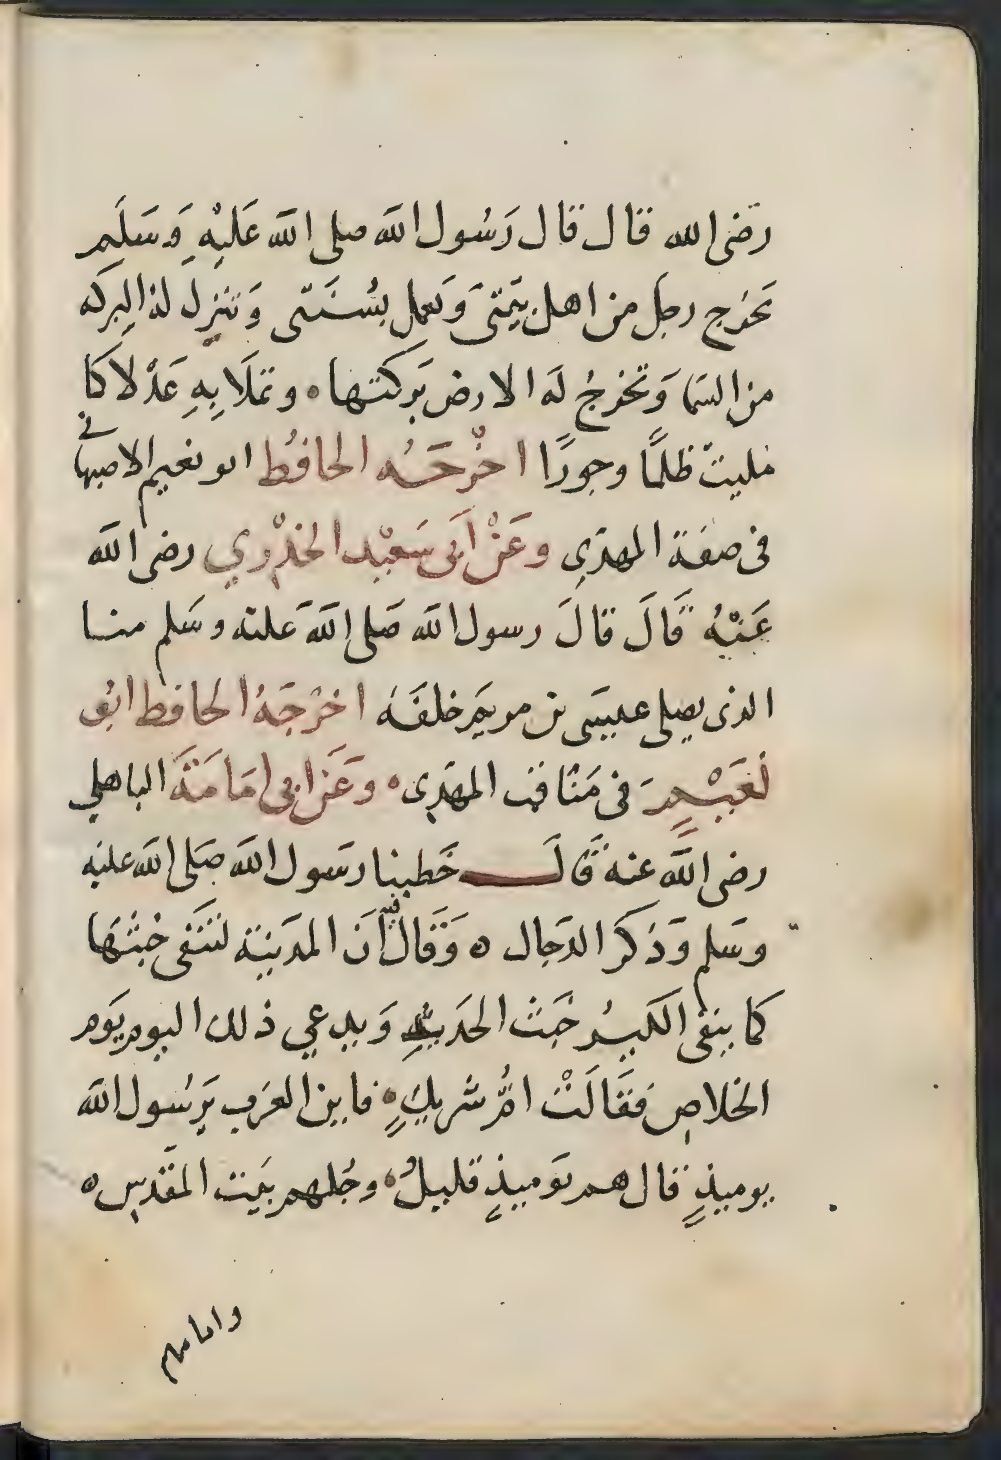 رضى الله قال قال رَسُول الله صلى الله عَليْهِ وَسَلَم
يَخرُج رجل من اهل بيَتىَ وَيعمل بسُنَتى وَتنزل لهُ البركه
من السَما وَتخرُجُ لَه الارض بَركتها ٥ وتملَا بِهِ عَدْلا كَا
مليتْ ظلمًا وجورًا اخْرجَهُ الحافُظ ابو نعيم الاصبهانى
فى صفة المهدَيِ وعَنْ ابَى سَعيْد الخدْرِي رضى الله
عَنْهُ قَالَ قالَ رسول الله صَلى الله عَليه وسَلم منا
الذى يصلى عيسَى بن مريَم خلفَهُ اخرْجَهُ الحافظ ابُو
نُعَيْمٍ فى مَنَاقب المهدِي ٥ وَعَن ابى امَامَةَ الباهلي
رضى الله عنه قَالَ خَطبنا رسَول الله صَلى الله عليه
وسَلم وَذكَر الدجَال ٥ وَقَال فيه اَن المدَينة لتنَفى خبثهَا
كما ينفى الكيرُ خبَث الحدَيدِ وَيدعي ذلك اليوم يَوم
الخلاص فقَالَتْ امُّ شريكٍ ٥ فاين العرَب يَرسُول الله
يوميذٍ قال هم يَوميذٍ قليلُ ٥ وجُلهم بَيت المقَدس ٥
وامامهم